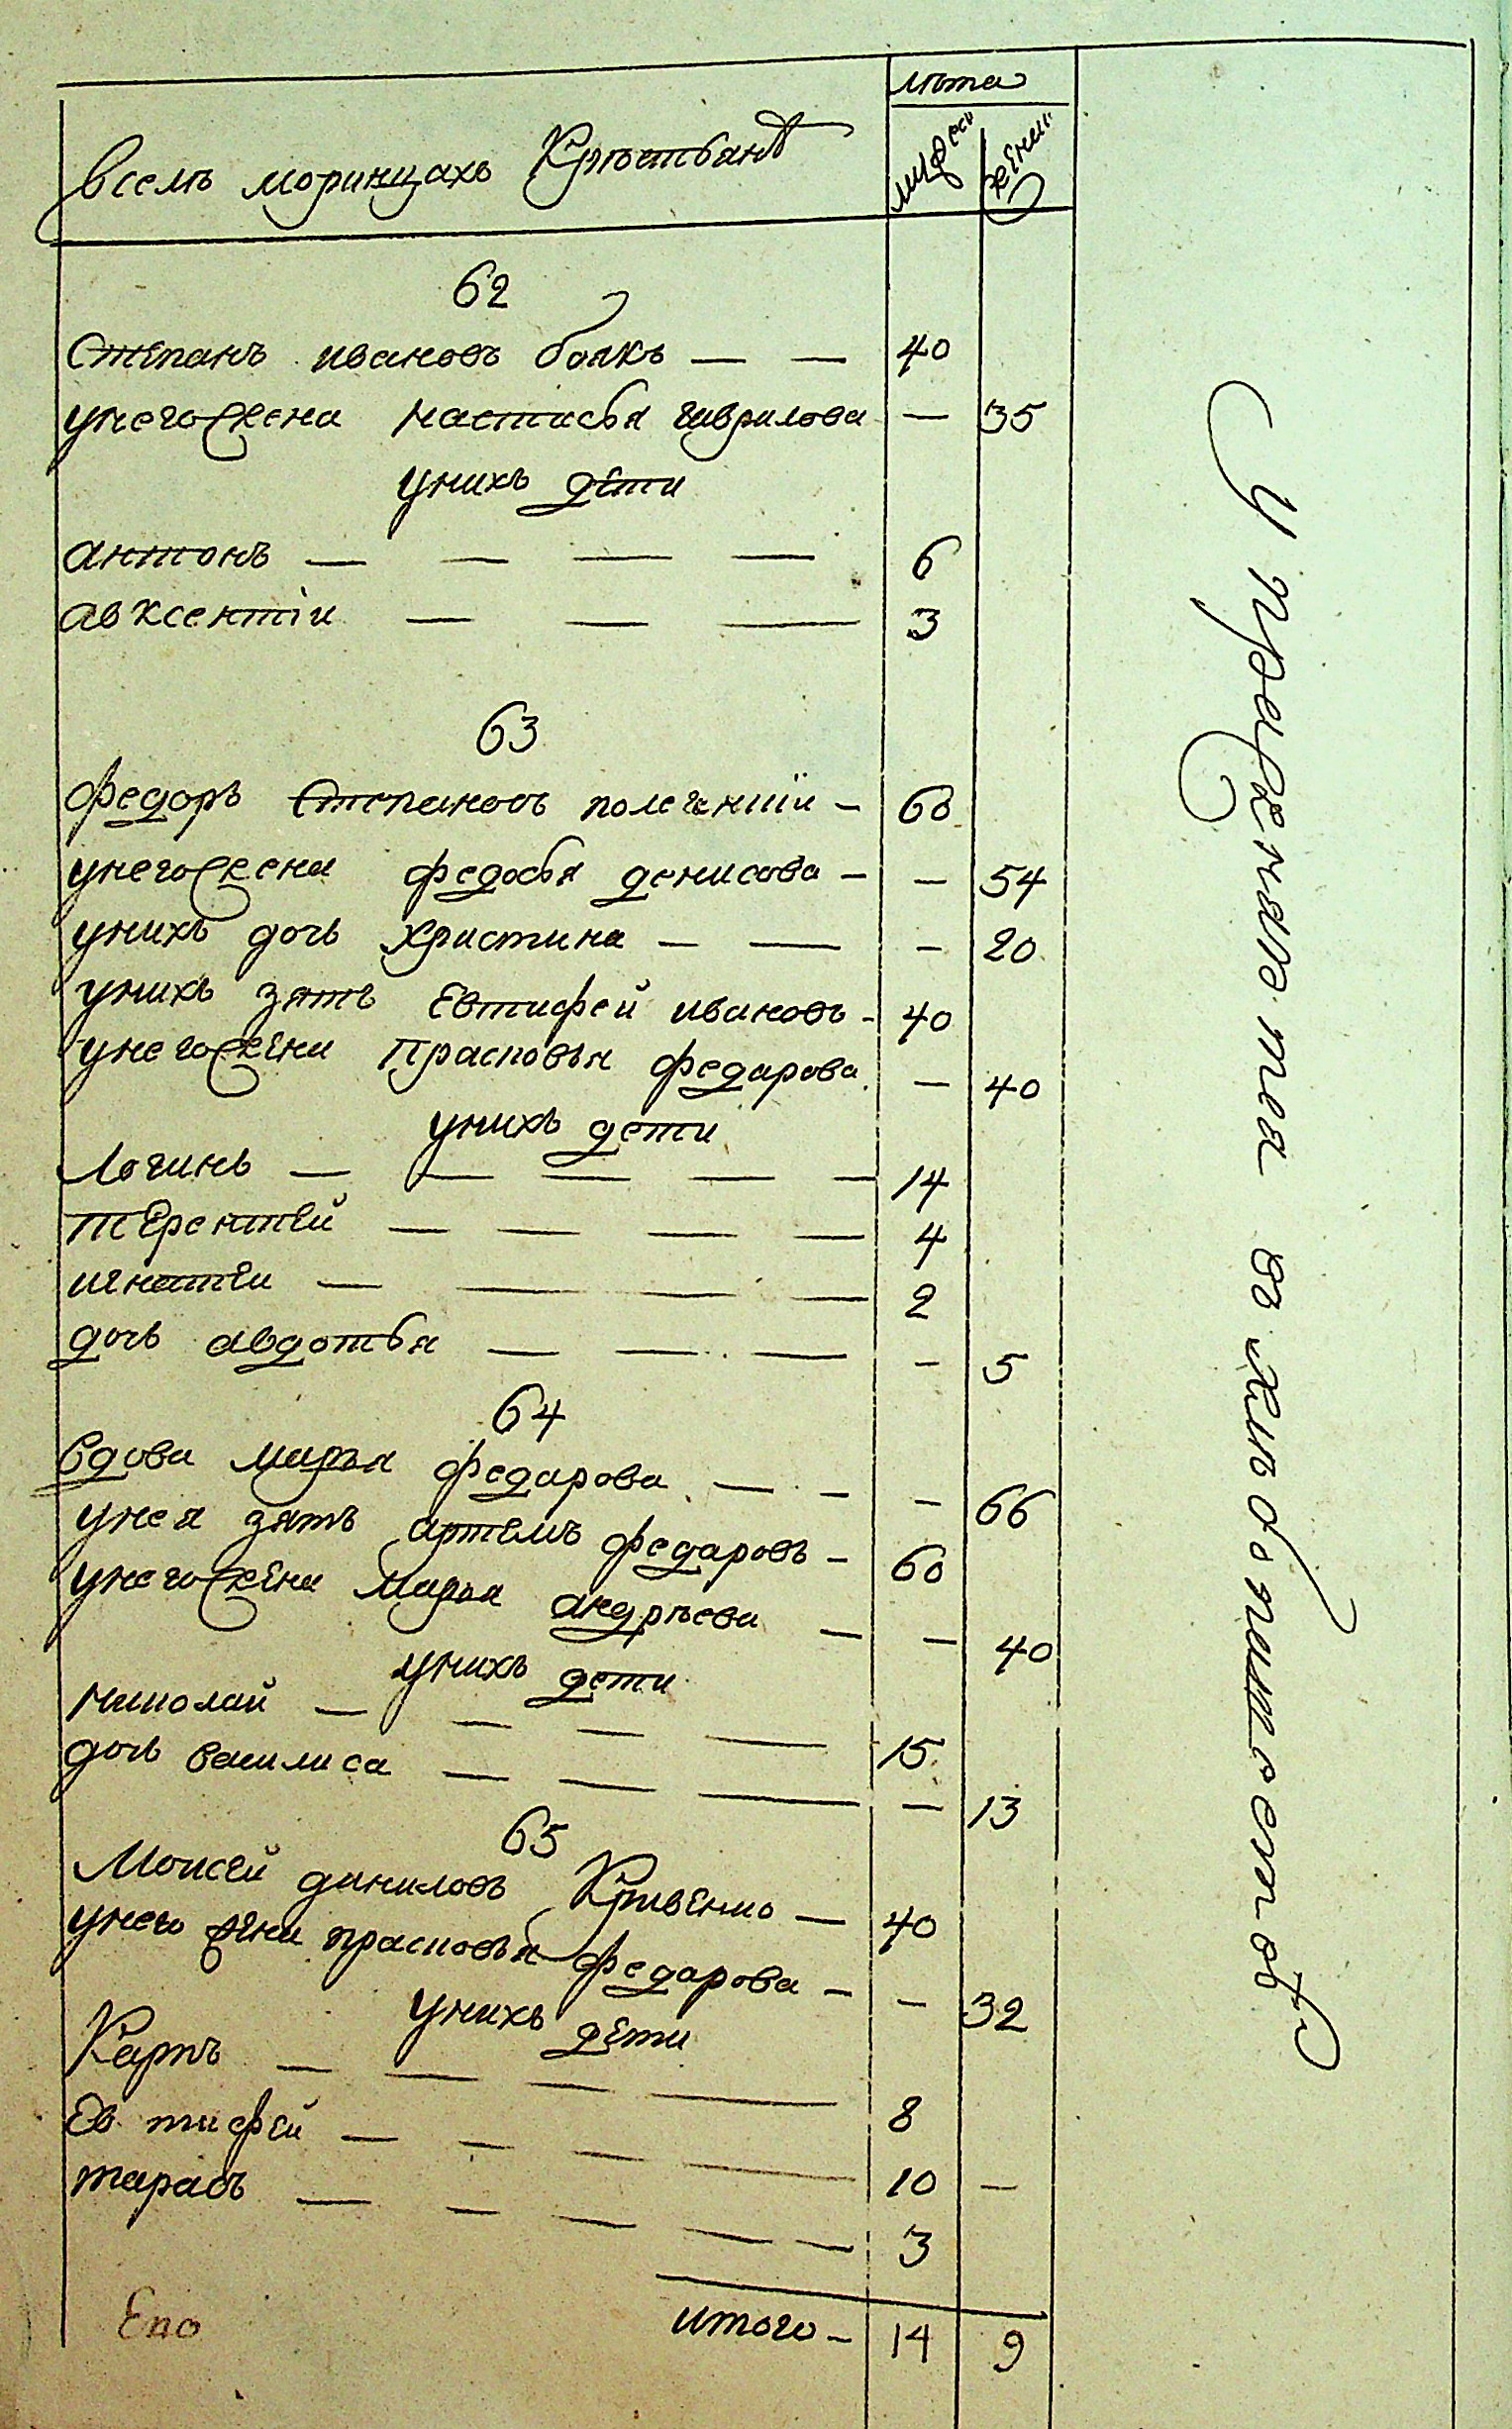 лѣта
всемъ моринцахъ Крѣстьянъ
мужеск
женск
62
Степанъ ивановъ бойкъ — — 40
унего жена настасья гаврилова — 35
унихъ дети
антонъ — — — — 6
авксентіи — — — 3
63
Федоръ Степановъ полегенкіи — 60
унего жена федосья денисова — — 54
унихъ дочь христина — — — 20
унихъ зять Евтифей ивановъ — 40
унего жена Прасковья федарова — 40
унихъ дети
Логинъ — — — — — 14
терентей — — — — 4
игнатеи — — — — 2
дочь авдотья — — — — 5
64
Вдова марья федарова — — — 66
унея зять артемъ федаровъ — 60
унего жена марья андрѣева — — 40
унихъ дети
николай — — — — 15
дочь василиса — — — — 13
65
Моисей даниловъ Кривенко — 40
унего жена прасковья федарова — — 32
унихъ дети
Карпъ — — — — — 8
Евтифей — — — — 10 —
тарасъ — — — — — 3
итого — 14 9
Епо